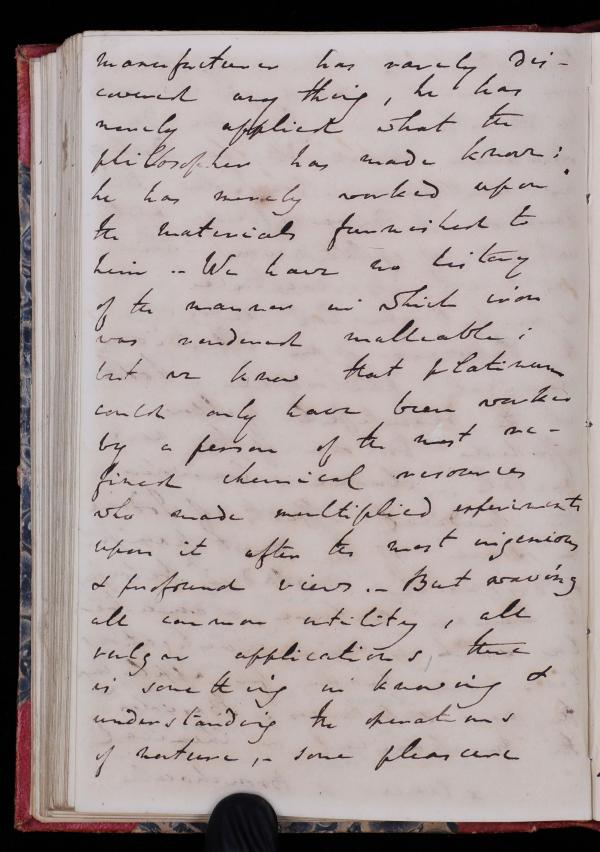 manufacturer has rarely dis-
covered any thing, he has
merely applied what the
philosopher has made known;
he has merely worked upon
the materials furnished to
him .- We have no history
of the manner in which iron
was rendered malleable;
but we know that platinum
could only have been worked
by a person of the most re-
fined chemical resources
who made multiplied experiments
upon it after the most ingenious
& profound views. - But waving
all common utility, all
vulgar applications, there
is something in knowing &
understanding the operations
of nature, - some pleasure